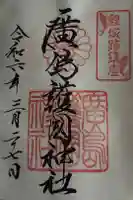 鯉城跡鎮座
廣島護國神社
令和六年三月二十七日
廣島
神社